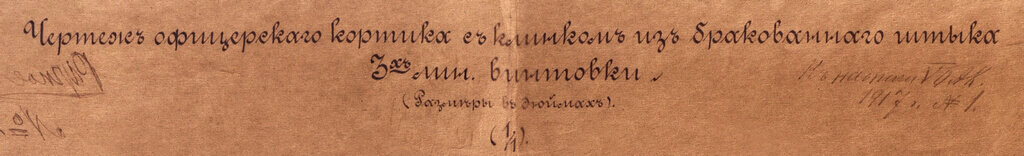 Чертежъ офицерскаго кортика съ клинкомъ изъ бракованнаго штыка
3хъ лин. винтовки.
(Размѣры въ дюймахъ).
(1/1).
1917 г. № 1.